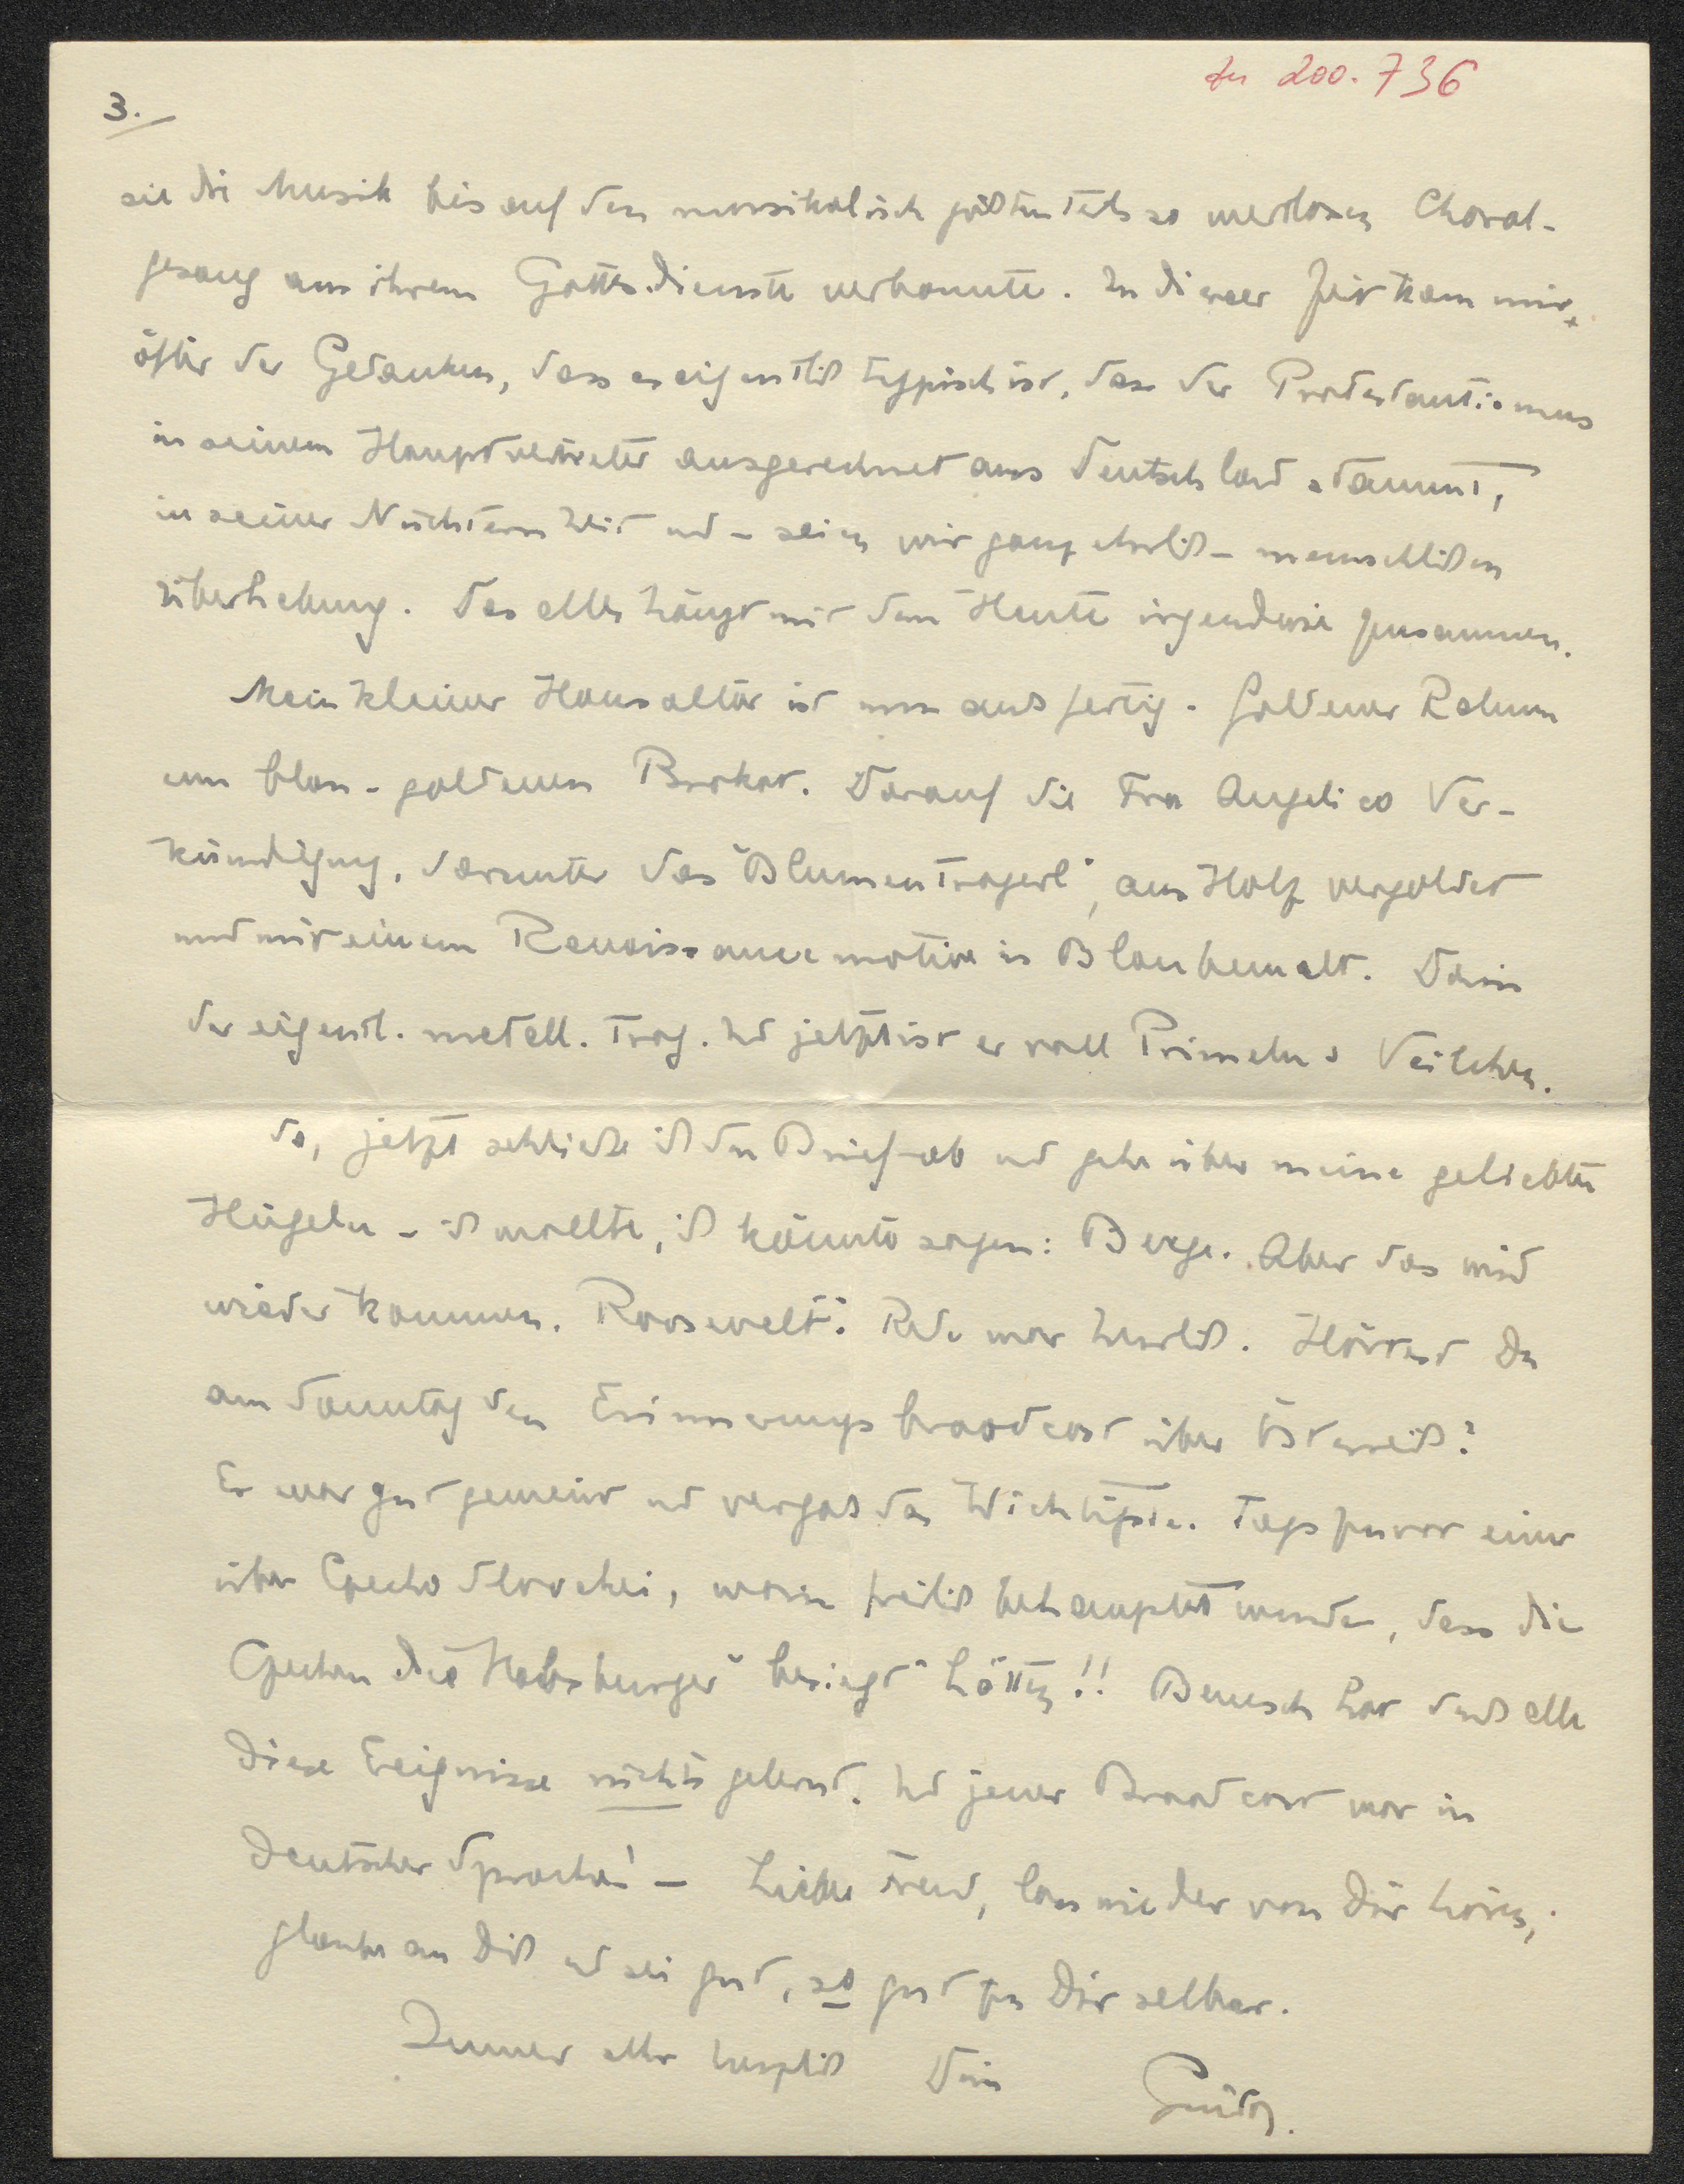 zu 200.736
3.
sie die Musik bis auf den musikalisch grösstenteils so wertlosen Choral-
gesang aus ihrem Gottesdienste verbannte. In dieser Zeit kam mir
öfter der Gedanken, dass es eigentlich typisch ist, dass der Protestantismus
in seinem Hauptvertreter ausgerechnet aus Deutschland stammt,
in seiner Nüchternheit und – seien wir ganz ehrlich – menschlichen
Überhebung. Das alles hängt mit dem Heute irgendwie zusammen.
Mein kleiner Hausaltar ist nun auch fertig. Goldener Rahmen
um blau-goldenen Brokat. Darauf die Fra Angelico Ver-
kündigung, darunter das "Blumentragerl", aus Holz vergoldet
und mit einem Renaissance motive in Blau bemalt. Darin
der eigentl. metall. Trog. Und jetzt ist er voll Primeln & Veilchen.
So, jetzt schließe ich den Brief ab und gehe über meine geliebten
Hügeln – ich wollte, ich könnte sagen: Berge. Aber das wird
wieder kommen. Roosevelts Rede war herrlich. Hörtest Du
am Sonntag den Erinnerungsbroadcast über Österreich?
Er war gut gemeint und vergaß das Wichtigste. Tags zuvor einer
über Czechoslovakei, worin freilich behauptet wurde, dass die
Czechen die Habsburger "besiegt" hätten!! Benesch hat durch alle
diese Ereignisse nichts gelernt. Und jener Broadcast war in
deutscher Sprache! – Liebe Freud, lass wieder von Dir hören,
glaube an Dich und sei gut, so gut zu Dir selber.
Immer aller herzlichst Dein Guido.